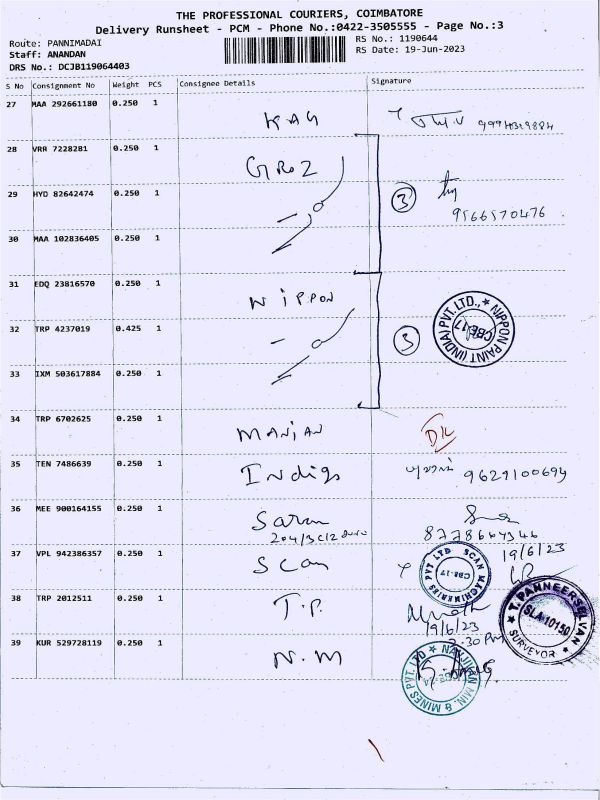 THE PROFESSIONAL COURIERS, COIMBATORE
Delivery Runsheet - PCM - Phone No.:0422-3505555 - Page No.:3
Route: PANNIMADAI
RS No.: 1190644
Staff: ANANDAN
RS Date: 19-Jun-2023
DRS No.: DCJB119064403
S No Consignment No Weight PCS Consignee Details Signature
27 MAA 292661180 0.250 1 KAG
28 VRR 7228281 0.250 1 GROZ
29 HYD 82642474 0.250 1 3 9566570476
30 MAA 102836405 0.250 1
31 EDQ 23816570 0.250 1 NIPPON
NIPPON PAINT (INDIA) PVT. LTD., CBE-17
32 TRP 4237019 0.425 1 3
33 IXM 503617884 0.250 1
34 TRP 6702625 0.250 1 MANIAN
35 TEN 7486639 0.250 1 Indigo 9629100694
36 MEE 900164155 0.250 1 Saran
37 VPL 942386357 0.250 1 Scan 19/6/23
SCAN MACHINERIES PVT LTD CBE-17
38 TRP 2012511 0.250 1 T.P. 19/6/23
T. PANNEERSELVAN SLA 10150 SURVEYOR
39 KUR 529728119 0.250 1 N.M
NAVJIVAN MIN. & MINES PVT. LTD